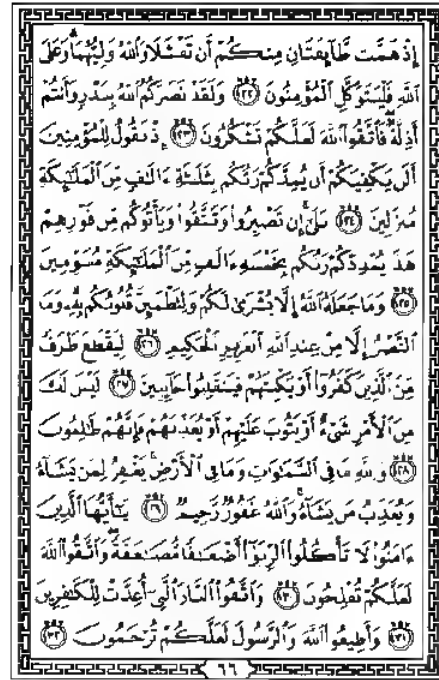 إِذْ هَمَّت طَّآئِفَتَانِ مِنكُمْ أَن تَفْشَلَا وَٱللَّهُ وَلِيُّهُمَا ۗ وَعَلَى
ٱللَّهِ فَلْيَتَوَكَّلِ ٱلْمُؤْمِنُونَ ١٢٢ وَلَقَدْ نَصَرَكُمُ ٱللَّهُ بِبَدْرٍ وَأَنتُمْ
أَذِلَّةٌ ۖ فَٱتَّقُوا۟ ٱللَّهَ لَعَلَّكُمْ تَشْكُرُونَ ١٢٣ إِذْ تَقُولُ لِلْمُؤْمِنِينَ
أَلَن يَكْفِيَكُمْ أَن يُمِدَّكُمْ رَبُّكُم بِثَلَٰثَةِ ءَالَٰفٍ مِّنَ ٱلْمَلَٰٓئِكَةِ
مُنزَلِينَ ١٢٤ بَلَىٰٓ ۚ إِن تَصْبِرُوا۟ وَتَتَّقُوا۟ وَيَأْتُوكُم مِّن فَوْرِهِمْ
هَٰذَا يُمْدِدْكُمْ رَبُّكُم بِخَمْسَةِ ءَالَٰفٍ مِّنَ ٱلْمَلَٰٓئِكَةِ مُسَوِّمِينَ
١٢٥ وَمَا جَعَلَهُ ٱللَّهُ إِلَّا بُشْرَىٰ لَكُمْ وَلِتَطْمَئِنَّ قُلُوبُكُم بِهِۦ ۗ وَمَا
ٱلنَّصْرُ إِلَّا مِنْ عِندِ ٱللَّهِ ٱلْعَزِيزِ ٱلْحَكِيمِ ١٢٦ لِيَقْطَعَ طَرَفًا
مِّنَ ٱلَّذِينَ كَفَرُوٓا۟ أَوْ يَكْبِتَهُمْ فَيَنقَلِبُوا۟ خَآئِبِينَ ١٢٧ لَيْسَ لَكَ
مِنَ ٱلْأَمْرِ شَىْءٌ أَوْ يَتُوبَ عَلَيْهِمْ أَوْ يُعَذِّبَهُمْ فَإِنَّهُمْ ظَٰلِمُونَ
١٢٨ وَلِلَّهِ مَا فِى ٱلسَّمَٰوَٰتِ وَمَا فِى ٱلْأَرْضِ ۚ يَغْفِرُ لِمَن يَشَآءُ
وَيُعَذِّبُ مَن يَشَآءُ ۚ وَٱللَّهُ غَفُورٌ رَّحِيمٌ ١٢٩ يَٰٓأَيُّهَا ٱلَّذِينَ
ءَامَنُوا۟ لَا تَأْكُلُوا۟ ٱلرِّبَوٰٓا۟ أَضْعَٰفًا مُّضَٰعَفَةً ۖ وَٱتَّقُوا۟ ٱللَّهَ
لَعَلَّكُمْ تُفْلِحُونَ ١٣٠ وَٱتَّقُوا۟ ٱلنَّارَ ٱلَّتِىٓ أُعِدَّتْ لِلْكَٰفِرِينَ
١٣١ وَأَطِيعُوا۟ ٱللَّهَ وَٱلرَّسُولَ لَعَلَّكُمْ تُرْحَمُونَ ١٣٢
٦٦